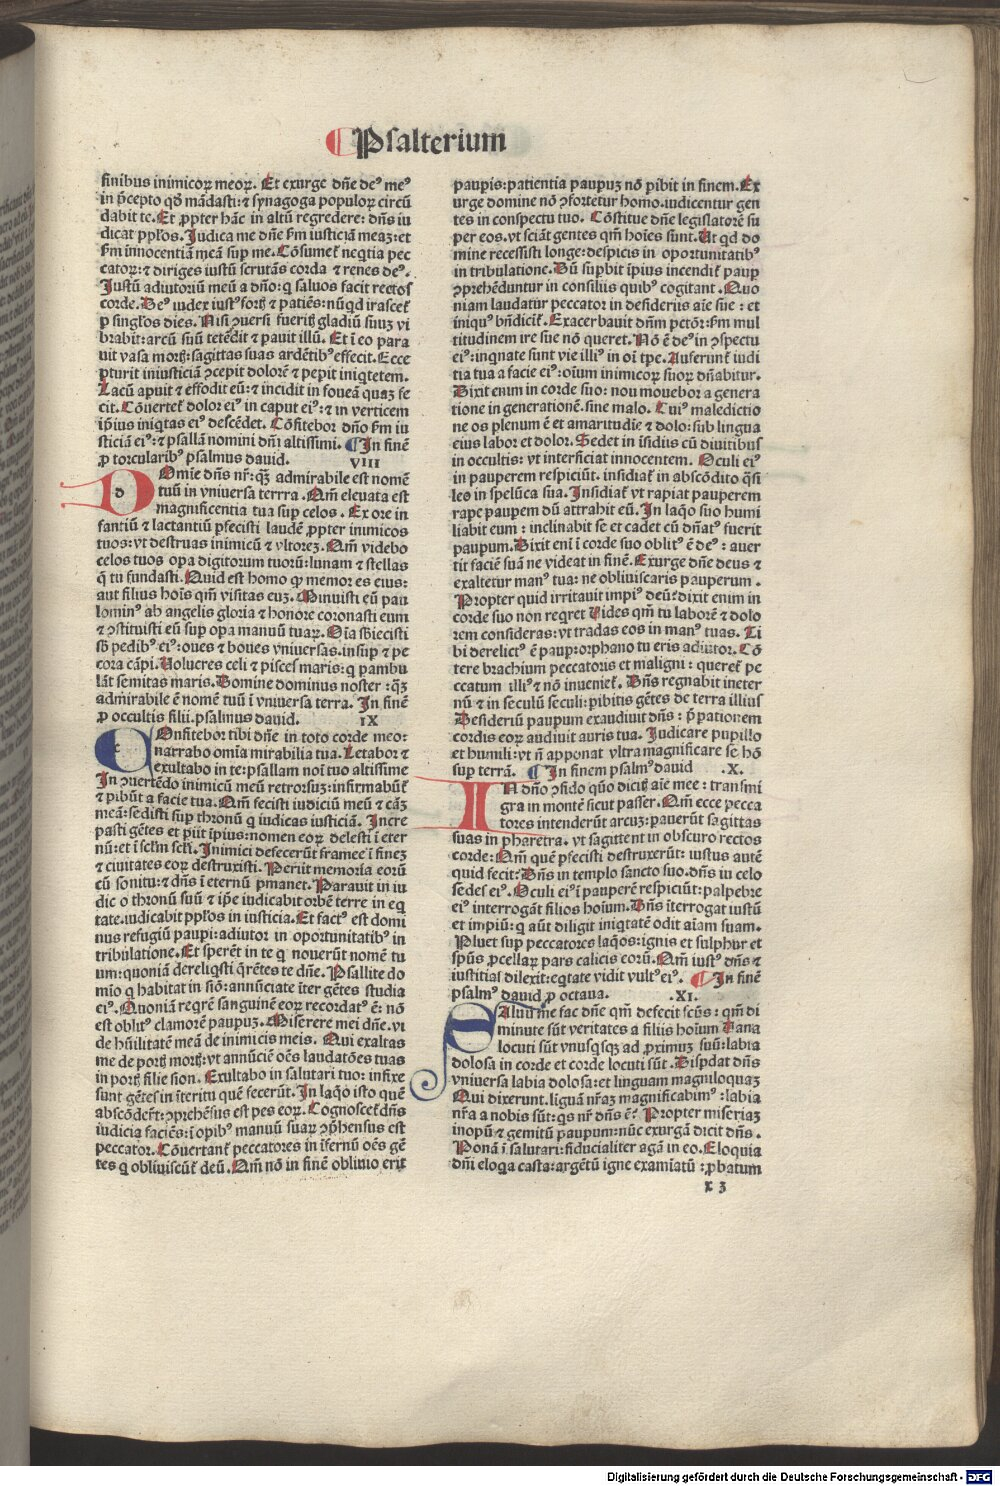 Psalterium
finibus inimicoꝝ meoꝝ. Et exurge dñe deꝰ meꝰ
in p̄cepto qḋ mãdasti: ⁊ synagoga populoꝝ circũ
dabit te. Et ꝓpter hãc in altũ regredere: dñs iu
dicat ppl̃os. Judica me dñe ẜm iusticiã meaꝫ: et
ẜm innocentiã meã suꝑ me. Cõsumet̃ neq̃tia pec
catoꝝ: ⁊ diriges iustũ scrutãs corda ⁊ renes deꝰ.
Justũ adiutoriũ meũ a dño: q̃ saluos facit rectos
corde. Deꝰ iudex iustꝰ fortꝭ ⁊ patiẽs: nũqd irascet̃
ꝑ singl̃os dies. Nisi ꝯuersi fueritꝭ gladiũ suuꝫ vi
brabit: arcũ suũ tetẽdit ⁊ pauit illũ. Et ĩ eo para
uit vasa mortꝭ: sagittas suas ardẽtibꝰ effecit. Ecce
ꝑturit iniusticiã ꝯcepit dolorẽ ⁊ peꝑit iniq̃tetem.
Lacũ aꝑuit ⁊ effodit eũ: ⁊ incidit in foueã quaꝫ fe
cit. Cõuertet̃ dolor eiꝰ in caput eiꝰ: ⁊ in verticem
ip̃ius iniq̃tas eiꝰ descẽdet. Cõfitebor dño ẜm iu
sticiã eiꝰ: ⁊ psallã nomini dñi altissimi. In finẽ
ꝓ torcularibꝰ psalmus dauid. VIII
Domie dñs nr̃: qꝫ admirabile est nomẽ
tuũ in vniuersa terrra. Qm̃ eleuata est
magnificentia tua suꝑ celos. Ex ore in
fantiũ ⁊ lactantiũ ꝑfecisti laudẽ ꝓpter inimicos
tuos: vt destruas inimicũ ⁊ vltoreꝫ. Qm̃ videbo
celos tuos opa digitorum tuorũ: lunam ⁊ stellas
q̃ tu fundasti. Quid est homo ꝙ memor es eius:
aut filius hoĩs qm̃ visitas euꝫ. Minuisti eũ pau
lominꝰ ab angelis gloria ⁊ honore coronasti eum
⁊ ꝯstituisti eũ suꝑ opa manuũ tuaꝝ. Oĩa sb̃iecisti
sb̃ pedibꝰ eiꝰ: oues ⁊ boues vniuersas. insuꝑ ⁊ pe
cora cãpi. Volucres celi ⁊ pisces maris: q̃ ꝑambu
lãt semitas maris. Domine dominus noster: qꝫ
admirabile ẽ nomẽ tuũ ĩ vniuersa terra. In finẽ
ꝓ occultis filii. psalmus dauid. IX
Confitebor tibi dñe in toto corde meo:
narrabo omĩa mirabilia tua. Letabor ⁊
exultabo in te: psallam noĩ tuo altissime
In ꝯuertẽdo inimicũ meũ retrorsuꝫ: infirmabũt̃
⁊ ꝑibũt a facie tua. Qm̃ fecisti iudiciũ meũ ⁊ cãꝫ
meã: sedisti suꝑ thronũ q̃ iudicas iusticiã. Incre
pasti gẽtes et ꝑiit ĩpius: nomen eoꝝ delesti ĩ eter
nũ: et ĩ scl̃m scl̃i. Inimici defecerũt framee ĩ fineꝫ
⁊ ciuitates eoꝝ destruxisti. Periit memoria eorũ
cũ sonitu: ⁊ dñs ĩ eternũ ꝑmanet. Parauit in iu
dic o thronũ suũ ⁊ ip̃e iudicabit orbẽ terre in eq̃
tate. iudicabit ppl̃os in iusticia. Et factꝰ est domi
nus refugiũ pauꝑi: adiutor in oportunitatibꝰ in
tribulatione. Et sperẽt in te q̃ nouerũt nomẽ tu
um: quoniã dereliq̃sti q̃rẽtes te dñe. Psallite do
mĩo q̃ habitat in siõ: annũciate ĩter gẽtes studia
eiꝰ. Quoniã reqrẽ sanguinẽ eoꝝ recordatꝰ ẽ: nõ
est oblitꝰ clamorẽ paupuꝫ. Miserere mei dñe. vi
de hũilitatẽ meã de inimicis meis. Qui exaltas
me de portꝭ mortꝭ: vt annũciẽ oẽs laudatões tuas
in portꝭ filie sion. Exultabo in salutari tuo: infixe
sunt gẽtes in ĩteritu quẽ fecerũt. In laq̃o isto quẽ
abscõder̃t: ꝯprehẽsus est pes eoꝝ. Cognoscet̃ dñs
iudicia faciẽs: ĩ opibꝰ manuũ suaꝝ ꝯp̃hensus est
peccator. Cõuertant̃ peccatores in ĩfernũ oẽs gẽ
tes q̃ obliuiscũt̃ deũ. Qm̃ nõ in finẽ obliuio erit
pauꝑis: patientia paupuꝫ nõ ꝑibit in finem. Ex
urge domine nõ ꝯfortetur homo. iudicentur gen
tes in conspectu tuo. Cõstitue dñe legislatorẽ su
per eos. vt sciãt gentes qm̃ hoĩes sunt. Ut qd do
mine recessisti longe: despicis in oportunitatibꝰ
in tribulatione. Dũ supbit ĩpius incendit̃ paup
ꝯprehẽduntur in consiliis quibꝰ cogitant. Quo
niam laudatur peccator in desideriis aĩe sue: et
iniquꝰ bñdicit̃. Exacerbauit dñm pctõr: ẜm mul
titudinem ire sue nõ queret. Nõ ẽ deꝰ in ꝯspectu
eiꝰ: inqnate sunt vie illiꝰ in oĩ tpe. Auferunt̃ iudi
tia tua a facie eiꝰ: oĩum inimicoꝝ suoꝝ dñabitur.
Dixit enim in corde suo: non mouebor a genera
tione in generationẽ. sine malo. Cuiꝰ maledictio
ne os plenum ẽ et amaritudĩe ⁊ dolo: sub lingua
eius labor et dolor. Sedet in ĩsidiis cũ diuitibus
in occultis: vt interficiat innocentem. Oculi eiꝰ
in pauperem respiciũt. insidiat̃ in abscõdito q̃si
leo in spelũca sũa. Insidiat̃ vt rapiat pauperem
rape paupem dũ attrabit eũ. In laq̃o suo humi
liabit eum: inclinabit se et cadet cũ dñatꝰ fuerit
paupum. Dixit eni ĩ corde suo oblitꝰ ẽ deꝰ: auer
tit faciẽ suã ne videat in finẽ. Exurge dñe deus ⁊
exaltetur manꝰ tua: ne obliuiscaris pauperum.
Propter quid irritauit impiꝰ deũ? dixit enim in
corde suo non reqret Uides qm̃ tu laborẽ ⁊ dolo
rem consideras: vt tradas eos in manꝰ tuas. Ti
bi derelictꝰ ẽ paup: orphano tu eris adiutor. Cõ
tere brachium peccatoris et maligni: queret̃ pe
ccatum illiꝰ ⁊ nõ inueniet̃. Dñs regnabit ineter
nũ ⁊ in seculũ seculi: ꝑibitis gẽtes de terra illius
Desideriũ paupum exaudiuit dñs: p̃pationem
cordis eoꝝ audiuit auris tua. Judicare pupillo
et humili: vt ñ apponat vltra magnificare se hõ
suꝑ terrã. In finem psalmꝰ dauid .X.
In dño ꝯfido quõ dicitꝭ aĩe mee: transmi
gra in montẽ sicut passer. Qm̃ ecce pecca
tores intenderũt arcuꝫ: pauerũt sagittas
suas in pharetra. vt sagittent in obscuro rectos
corde: Qm̃ quẽ ꝑfecisti destruxerũt: iustus autẽ
quid fecit? Dñs in templo sancto suo. dñs in celo
sedes eiꝰ. Oculi eiꝰ ĩ pauperẽ respiciũt: palpebre
eiꝰ interrogãt filios hoĩum. Dñs ĩterrogat iustũ
et impiũ: q̃ aũt diligit iniq̃tatẽ odit aĩam suam.
Pluet suꝑ peccatores laq̃os: ignis et sulphur et
spũs ꝓcellaꝝ pars calicis eorũ. Qm̃ iustꝰ dñs ⁊
iustitias dilexit: eq̃tate vidit vultꝰ eiꝰ. In finẽ
psalmꝰ dauid ꝓ octaua. .XI.
Saluũ me fac dñe qm̃ defecit scũs: qm̃ di
minute sũt veritates a filiis hoĩum Uana
locuti sũt vnusqsqꝫ ad ꝓximuꝫ suũ: labia
dolosa in corde et corde locuti sũt. Disꝑdat dñs
vniuersa labia dolosa: et linguam magniloquaꝫ
Qui dixerunt. liguã nr̃aꝫ magnificabimꝰ: labia
nr̃a a nobis sũt: qs nr̃ dñs ẽ? Propter miseriaꝫ
inopũ ⁊ gemitũ paupum: nũc exurgã dicit dñs.
Ponã ĩ salutari: fiducialiter agã in eo. Eloquia
dñi eloqa casta: argẽtũ igne examĩatũ: ꝓbatum
x 3
Digitalisierung gefördert durch die Deutsche Forschungsgemeinschaft - DFG